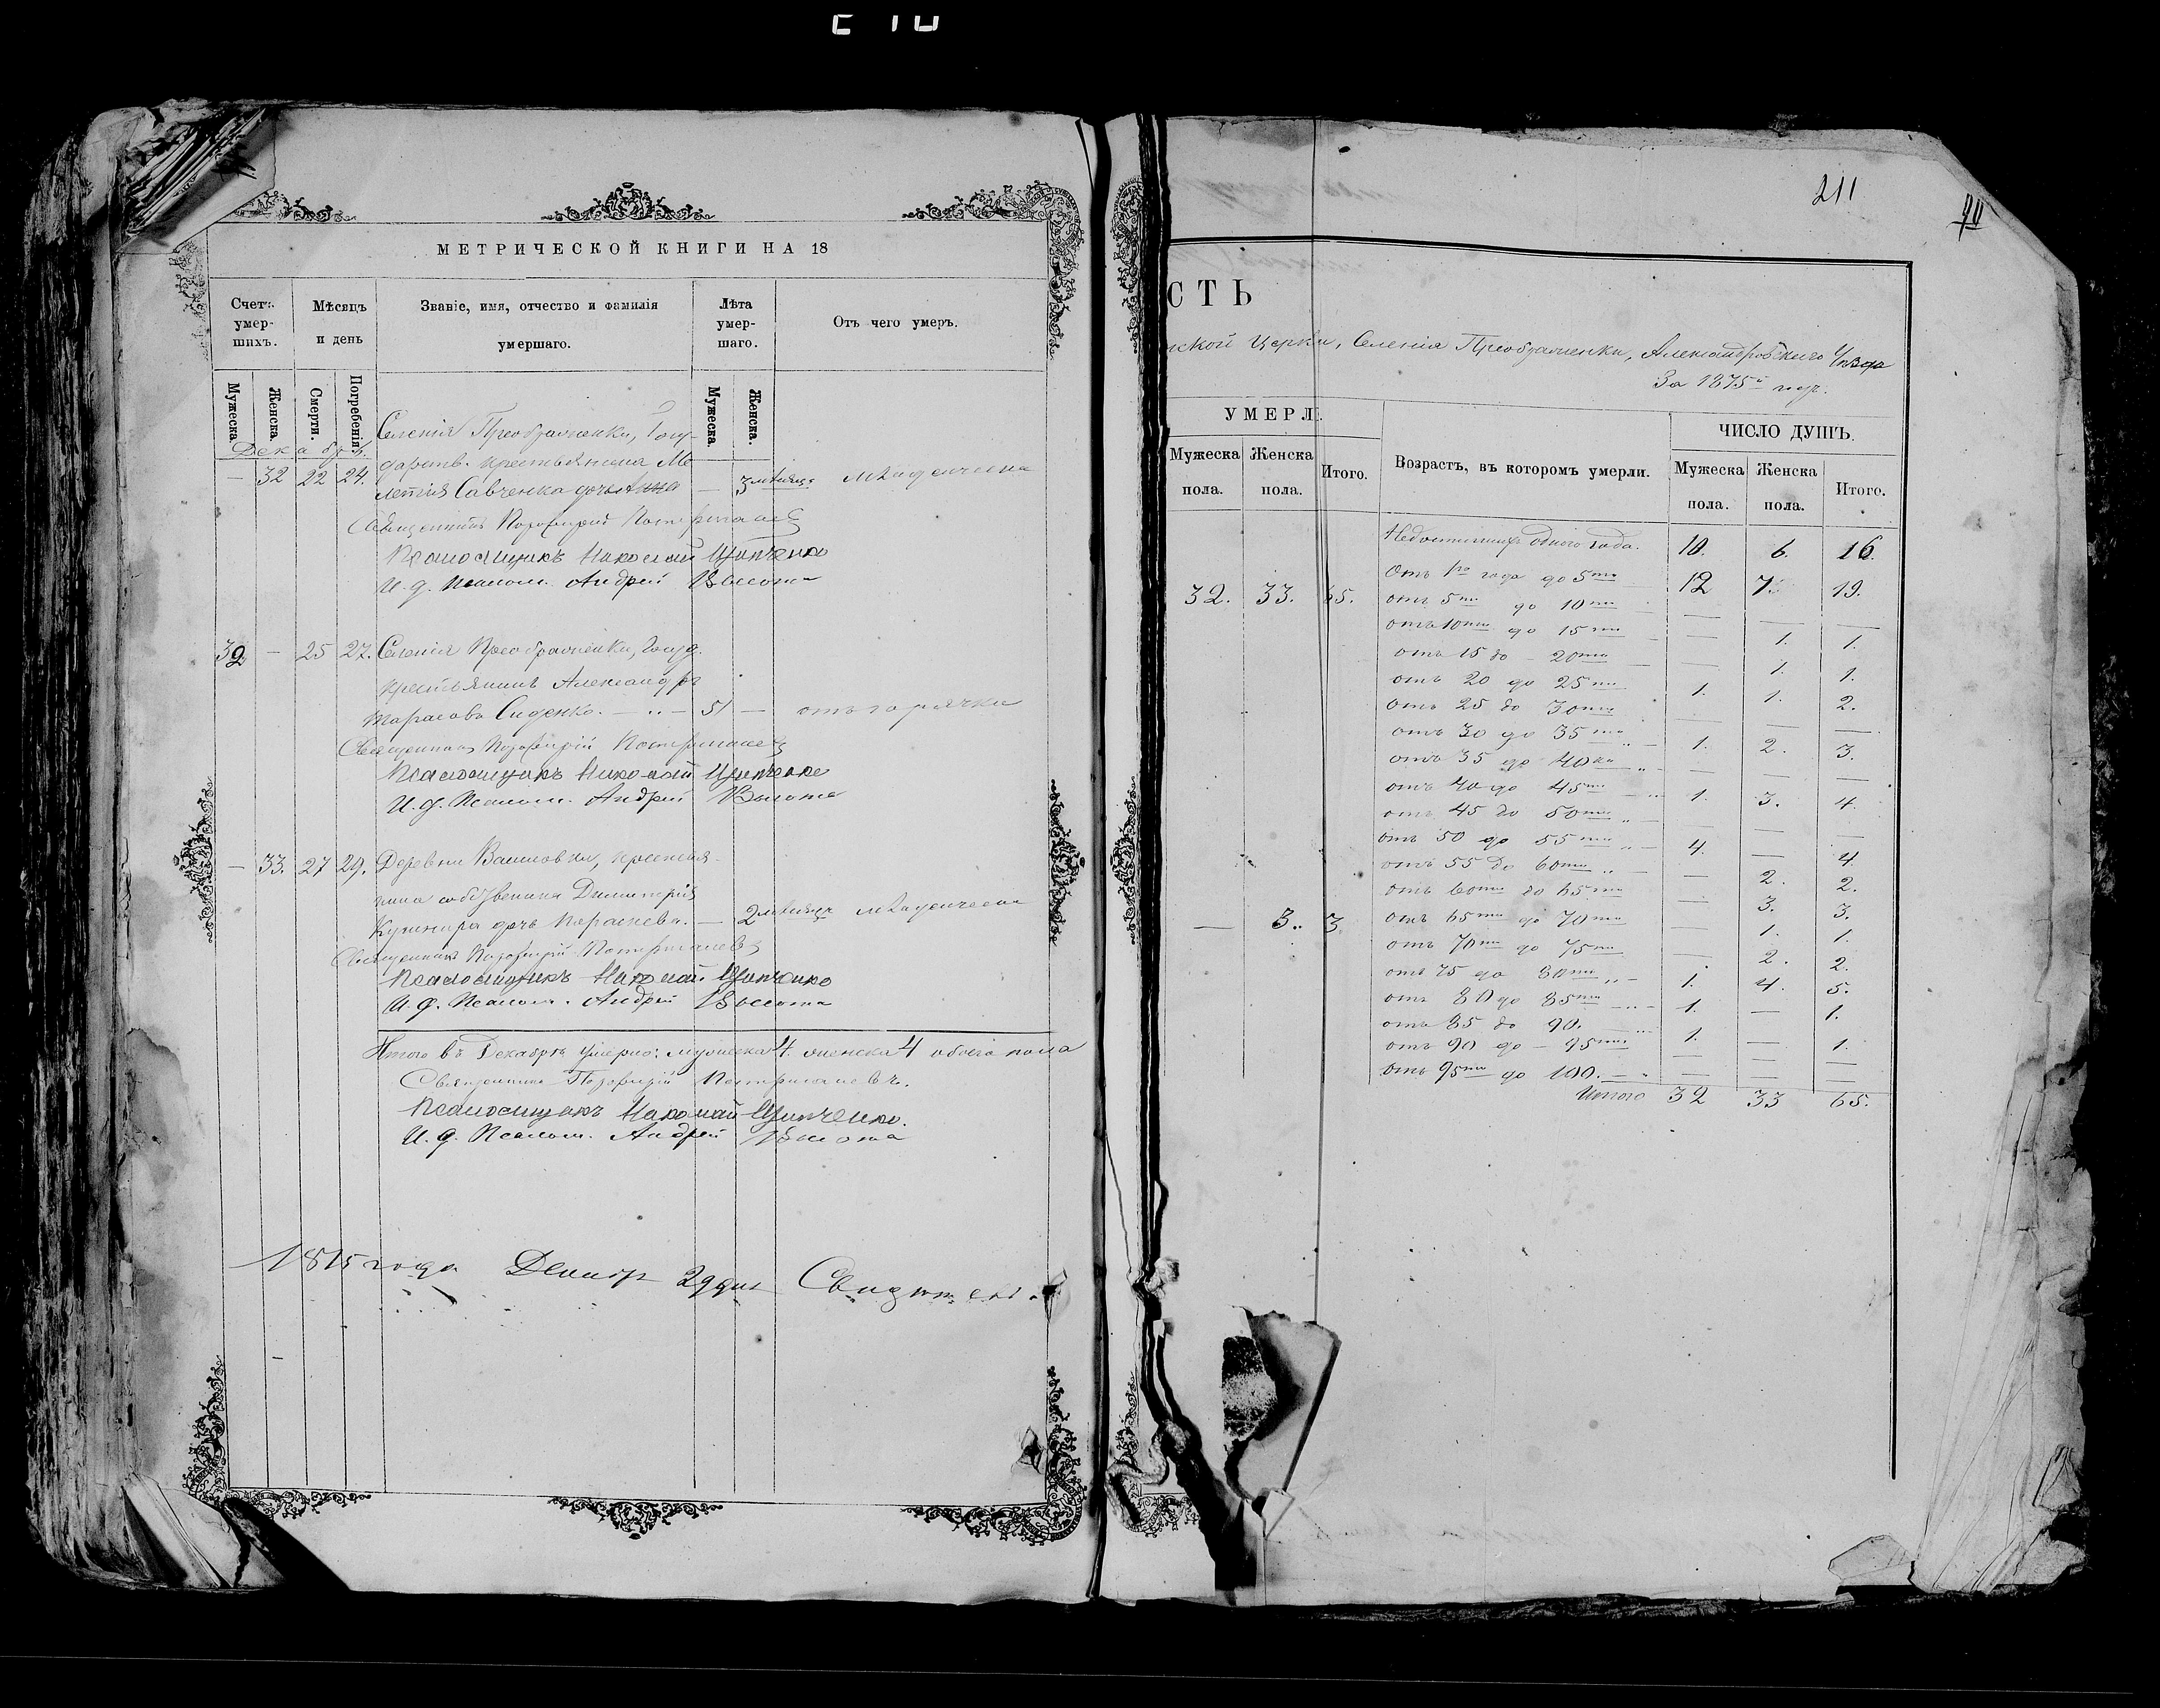 МЕТРИЧЕСКОЙ КНИГИ НА 18
Счетъ умер- шихъ.
Мѣсяцъ и день
Званіе, имя, отчество и фамилія умершаго.
Лѣта умер- шаго.
Отъ чего умеръ.
Мужеска
Женска
Смерти.
Погребенія
Мужеска.
Женска.
Декабрь.
Селенія Преображенки, Госу-
дарств. крестьянина Ме
— 32 22 24. летія Савченка дочь Анна — 3 мѣсяц. младенческа
Священникъ Порфирій
Псаломщикъ Николай Ципченко
И. д. Псалом. Андрей Высота
32 — 25 27. Селенія Преображенки, Госуд.
крестьянинъ Александръ
Тарасовъ Сиденко. — 51 — отъ горячки
Священникъ Порфирій
Псаломщикъ Николай Ципченко
И. д. Псалом. Андрей Высота
— 33. 27 29. Деревни крестья-
нина собственика Димитрія
Кушнира дочь Параскева. — 2 мѣсяца младенческа
Священникъ Порфирій
Псаломщикъ Николай Ципченко
И. д. Псалом. Андрей Высота
Итого въ Декабрѣ умерло: мужеска 4. женска 4 обоего пола
Священникъ Порфирій
Псаломщикъ Николай Ципченко.
И. д. Псалом. Андрей Высота
1875 года Декабр 29 дня
211
СТЬ
ской Церкви, Селенія Преображенки, Александровскаго Уѣзда
За 1875й годъ.
УМЕРЛ.
Мужеска пола.
Женска пола.
Итого.
Возрастъ, въ которомъ умерли.
ЧИСЛО ДУШЪ.
Мужеска пола.
Женска пола.
Итого.
Недостигшихъ одного года. 10. 6. 16.
Отъ 1го года до 5ти 12 7. 19.
32. 33. 65. отъ 5ти до 10ти — — —
отъ 10ти до 15ти — 1. 1.
отъ 15 до 20ти — 1. 1.
отъ 20 до 25ти 1. 1. 2.
отъ 25 до 30ти — — —
отъ 30 до 35ти 1. 2. 3.
отъ 35 до 40ка — — —
отъ 40 до 45ти 1. 3. 4.
отъ 45 до 50ти — — —
отъ 50 до 55ти 4. — 4
отъ 55 до 60ти — 2. 2.
отъ 60ти до 65ти — 3. 3.
— 3. 3. отъ 65ти до 70ти — 1. 1.
отъ 70ти до 75ти — 2. 2.
отъ 75 до 80ти 1. 4. 5.
отъ 80 до 85ти 1. — 1.
отъ 85 до 90. 1. — 1.
отъ 90 до 95ти — — —
отъ 95ти до 100. — — —
Итого 32 33 65.